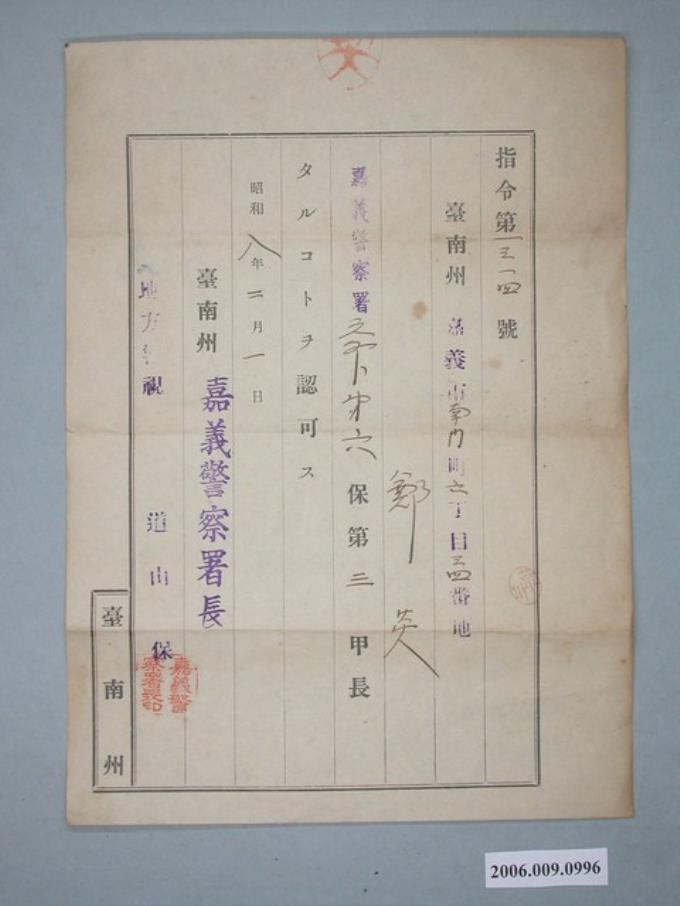 指令第一三四號
臺南州 嘉義市南門町六丁目三四番地
鄭 炎
嘉義警察署 第六保第三甲長
タルコトヲ認可ス
昭和八年三月一日
臺南州 嘉義警察署長
地方警視 道山保
嘉義警察署長印
臺南州
2006.009.0996